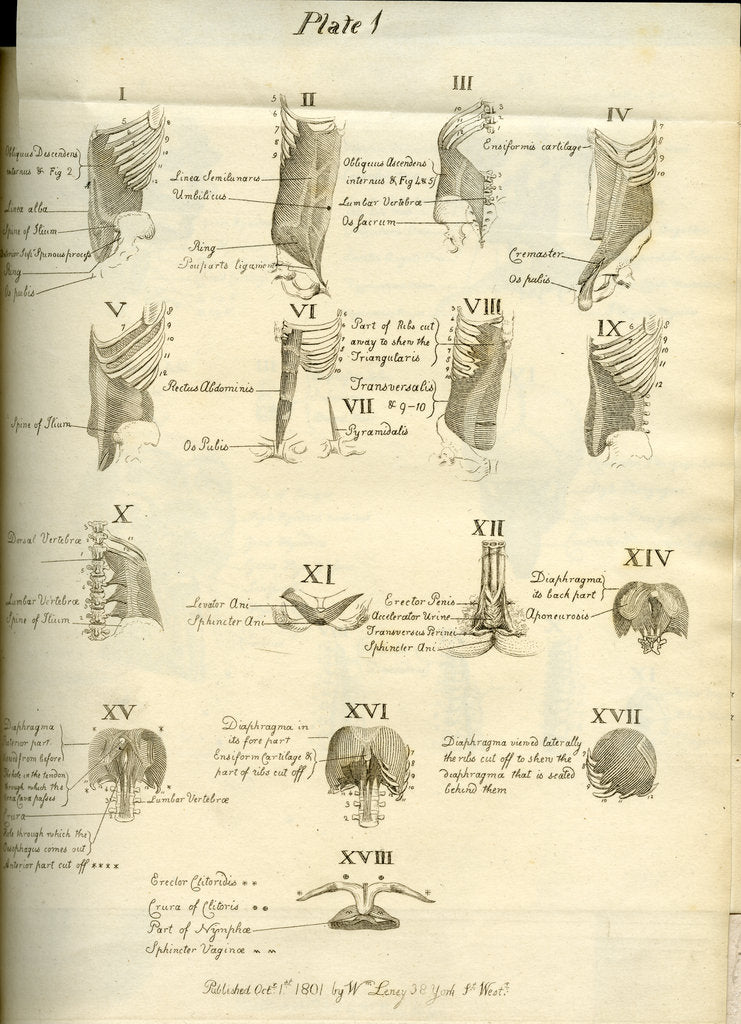 Plate 1
I
5
6
7
8
9
10
11
12
Obliquus Descendens
internus & Fig 2
Linea alba
Spine of Ilium
Spinous process
Ring
Os pubis
II
5
6
7
8
9
Linea Semilunaris
Umbilicus
Ring
Pouparts ligament
III
10
11
12
Obliquus Ascendens
internus & Fig 4 & 5
Lumbar Vertebræ
Os sacrum
IV
7
8
9
10
Ensiformis cartilage
Cremaster
Os pubis
V
7
8
9
10
11
12
Spine of Ilium
VI
Rectus Abdominis
Os Pubis
VII
Pyramidalis
VIII
Part of Ribs cut
away to shew the
Triangularis
Transversalis
& 9-10
IX
6
7
8
9
10
11
12
X
Dorsal Vertebræ
Lumbar Vertebræ
Spine of Ilium
XI
Levator Ani
Sphincter Ani
XII
Erector Penis
Accelerator Urinæ
Transversus Perinei
Sphincter Ani
XIV
Diaphragma
its back part
Aponeurosis
XV
Diaphragma
Posterior part
viewed from before
the hole in the tendon
through which the
Vena Cava passes
Crura
Hole through which the
Oesophagus comes out
Anterior part cut off ****
Lumbar Vertebræ
XVI
Diaphragma in
its fore part
Ensiform Cartilage &
part of ribs cut off
XVII
Diaphragma viewed laterally
the ribs cut off to shew the
diaphragma that is seated
behind them
XVIII
Erector Clitoridis **
Crura of Clitoris
Part of Nymphæ
Sphincter Vaginæ
Published Oct. 1st 1801 by Wm Leney 38 York St West.r